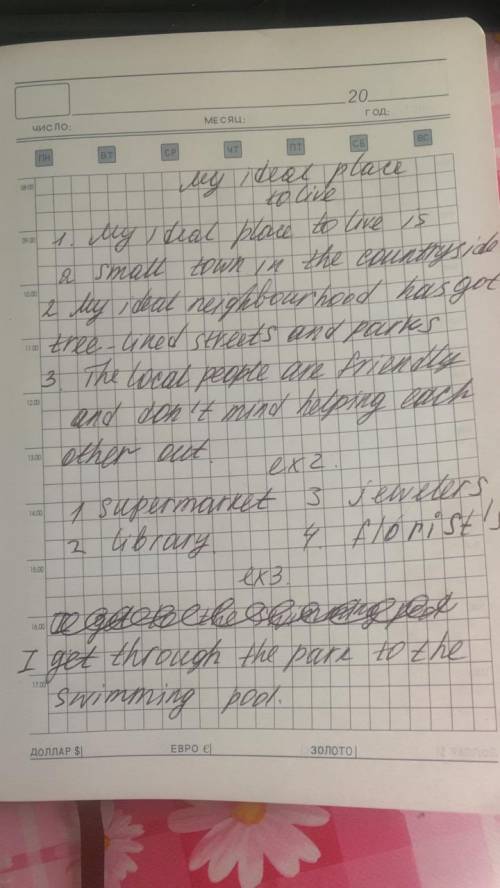 20
ЧИСЛО: МЕСЯЦ: ГОД:
ПН ВТ СР ЧТ ПТ СБ ВС
08:00
My ideal place
to live
09:00
1. My ideal place to live is
a small town in the countryside
10:00
2 My ideal neighbourhood has got
tree-lined streets and parks
11:00
3. The local people are friendly
12:00
and don't mind helping each
other out.
13:00
ex2.
1 supermarket 3 jewelers
14:00
2 library. 4. florist's
15:00
ex3.
16:00
I get through the park to the
17:00
swimming pool.
ДОЛЛАР $| ЕВРО €| ЗОЛОТО|